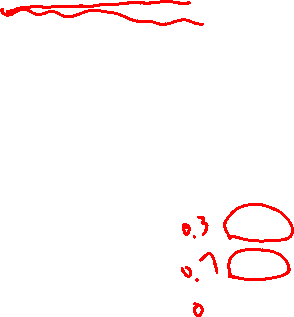 0.3
0.7
0